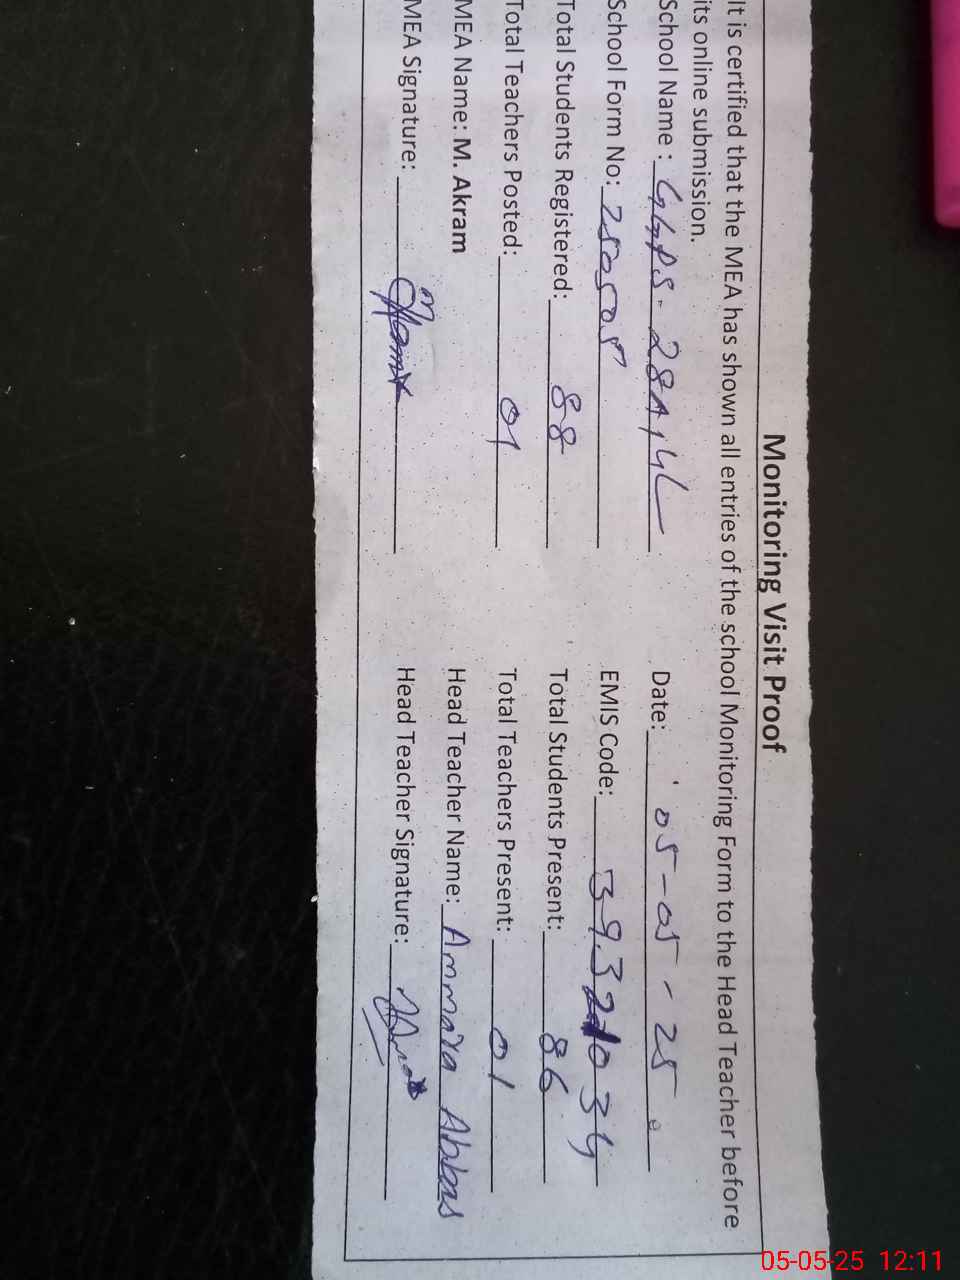 Monitoring Visit Proof
It is certified that the MEA has shown all entries of the school Monitoring Form to the Head Teacher before
its online submission.
School Name : GGPS. 28A/4L Date: 05-05-25
School Form No: 250505 EMIS Code: 39321034
Total Students Registered: 88 Total Students Present: 86
Total Teachers Posted: 01 Total Teachers Present: 01
MEA Name: M. Akram Head Teacher Name: Ammara Abbas
MEA Signature: Head Teacher Signature:
05-05-25 12:11